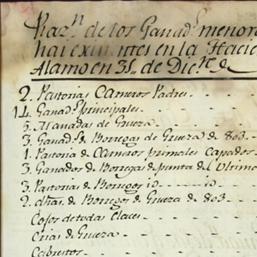 Raz.n de los Ganad.s menore
hai existentes en la Hacie
Alamo en 31,, de Dic.re
2. Pastorias Carneros Padres
14. Ganad.s Principales
5. Manadas de Cruza
3. Ganad.s de Borregas de Cruza de 803
1. Pastoria de Carneros primales Capados
3. Ganados de Borregas de punta del Ultimo
3. Pastorias de Borregos id. id.
2. chas. de Borregos de Cruza de 803
Cojos de todas clases
Crias de Cruza
Cabritos